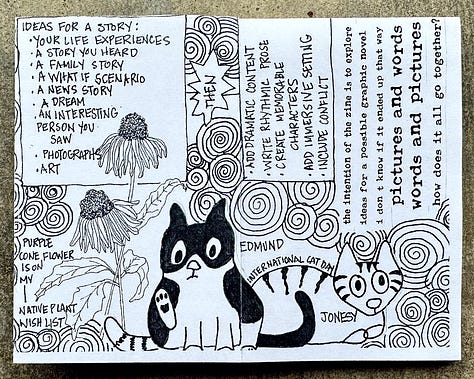 IDEAS FOR A STORY:
• YOUR LIFE EXPERIENCES
• A STORY YOU HEARD
• A FAMILY STORY
• A WHAT IF SCENARIO
• A NEWS STORY
• A DREAM
• AN INTERESTING
PERSON YOU
SAW
• PHOTOGRAPHS
• ART
THEN
• ADD DRAMATIC CONTENT
• WRITE RHYTHMIC PROSE
• CREATE MEMORABLE
CHARACTERS
• ADD IMMERSIVE SETTING
INCLUDE CONFLICT
the intention of the zine is to explore
ideas for a possible graphic novel
i don t know if it ended up that way
pictures and words
words and pictures
how does it all go together?
PURPLE
CONE FLOWER
IS ON
MY
NATIVE PLANT
WISH LIST
EDMUND
INTERNATIONAL CAT DAY
JONESY